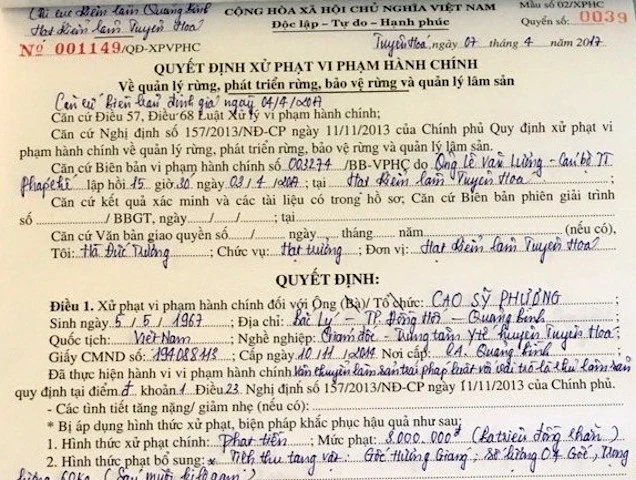 Chi cục Kiểm lâm Quảng Bình CỘNG HÒA XÃ HỘI CHỦ NGHĨA VIỆT NAM Mẫu số 02/XPHC
Hạt Kiểm lâm Tuyên Hoá Độc lập - Tự do - Hạnh phúc Quyển số: 0039
Nº 001149/QĐ-XPVPHC Tuyên Hoá, ngày 07 tháng 4 năm 2017
QUYẾT ĐỊNH XỬ PHẠT VI PHẠM HÀNH CHÍNH
Về quản lý rừng, phát triển rừng, bảo vệ rừng và quản lý lâm sản
Căn cứ biên bản định giá ngày 04/4/2017
Căn cứ Điều 57, Điều 68 Luật Xử lý vi phạm hành chính;
Căn cứ Nghị định số 157/2013/NĐ-CP ngày 11/11/2013 của Chính phủ Quy định xử phạt vi
phạm hành chính về quản lý rừng, phát triển rừng, bảo vệ rừng và quản lý lâm sản.
Căn cứ Biên bản vi phạm hành chính số 003274 /BB-VPHC do Ông Lê Văn Lương - Cán bộ TT
Pháp chế lập hồi 15 giờ 30 ngày 03/4/2017; tại Hạt Kiểm lâm Tuyên Hoá
Căn cứ kết quả xác minh và các tài liệu có trong hồ sơ; Căn cứ Biên bản phiên giải trình
số / BBGT, ngày / / ; tại
Căn cứ Văn bản giao quyền số / ngày tháng năm (nếu có),
Tôi: Hà Đức Trường ; Chức vụ: Hạt trưởng ; Đơn vị: Hạt Kiểm lâm Tuyên Hoá
QUYẾT ĐỊNH:
Điều 1. Xử phạt vi phạm hành chính đối với Ông (Bà)/ Tổ chức: CAO SỸ PHƯƠNG
Sinh ngày 5 / 5 / 1967 ; Địa chỉ: Bắc Lý - TP. Đồng Hới - Quảng Bình
Quốc tịch: Việt Nam ; Nghề nghiệp: Giám đốc - Trung tâm Y tế huyện Tuyên Hoá;
Giấy CMND số: 194088113 ; Cấp ngày 10/11/ Nơi cấp: CA. Quảng Bình
Đã thực hiện hành vi vi phạm hành chính Vận chuyển lâm sản trái pháp luật với vai trò là chủ lâm sản
quy định tại điểm đ khoản 1 Điều 23 Nghị định số 157/2013/NĐ-CP ngày 11/11/2013 của Chính phủ.
- Các tình tiết tăng nặng/ giảm nhẹ (nếu có):
* Bị áp dụng hình thức xử phạt, biện pháp khắc phục hậu quả như sau:
1. Hình thức xử phạt chính: Phạt tiền ; Mức phạt: 3.000.000đ (Ba triệu đồng chẵn)
2. Hình thức phạt bổ sung: * Tịch thu tang vật: Gốc Hương Giáng; số lượng 01 Gốc, Trọng
lượng 60kg (Sáu mươi kilôgam)